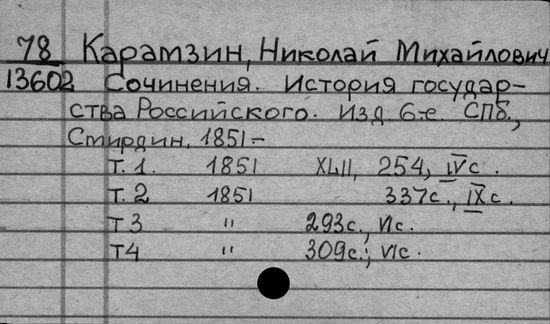 78 Карамзин, Николай Михайлович
13602 Сочинения. История государ-
ства Российского. Изд 6-е. СПб.,
Стирдин, 1851-
Т. 1. 1851 XLII, 254, IVс.
Т. 2 1851 337с., IXс.
Т 3 " 293с., VIс.
Т4 " 309с.; VIс.